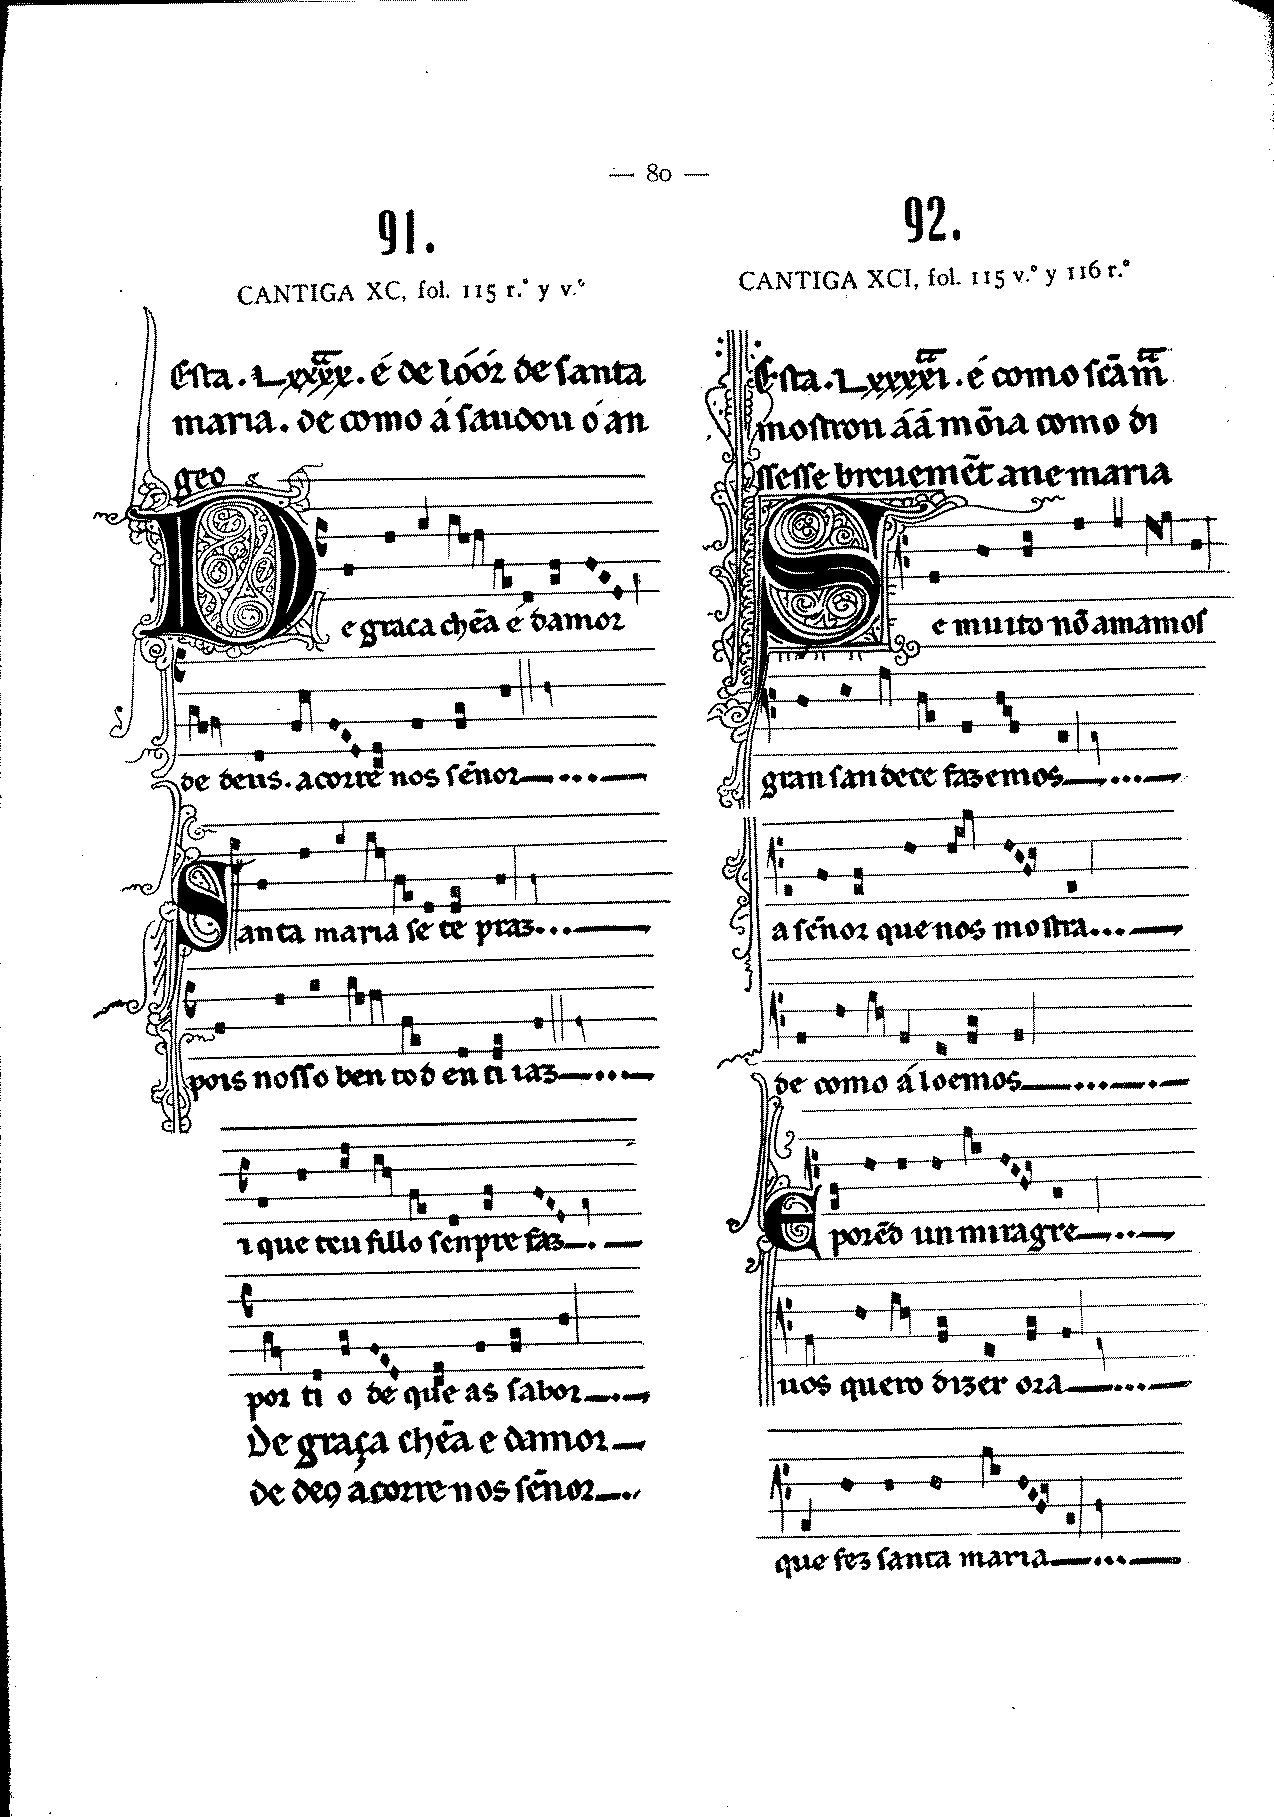 — 80 —
91.
CANTIGA XC, fol. 115 r.º y v.º
Esta . Lxxxx . é de lóór de santa
maria . de como á saudou ó an
geo
De graca chẽa é damor
de deus . acorre nos sẽnor
Santa maria se te praz
pois nosso ben tod en ti iaz
i que teu fillo senpre faz
por ti o de que as sabor
De graça chẽa e damor
de deꝯ ácorre nos sẽnor
92.
CANTIGA XCI, fol. 115 v.º y 116 r.º
Esta . Lxxxxi . é como scã m̃
mostrou áá mõia como di
ssesse breuemẽt aue maria
Se muito nõ amamos
gran sandece fazemos
a sẽnor que nos mostra
de como á loemos
E porẽd un miragre
uos quero dizer ora
que fez santa maria